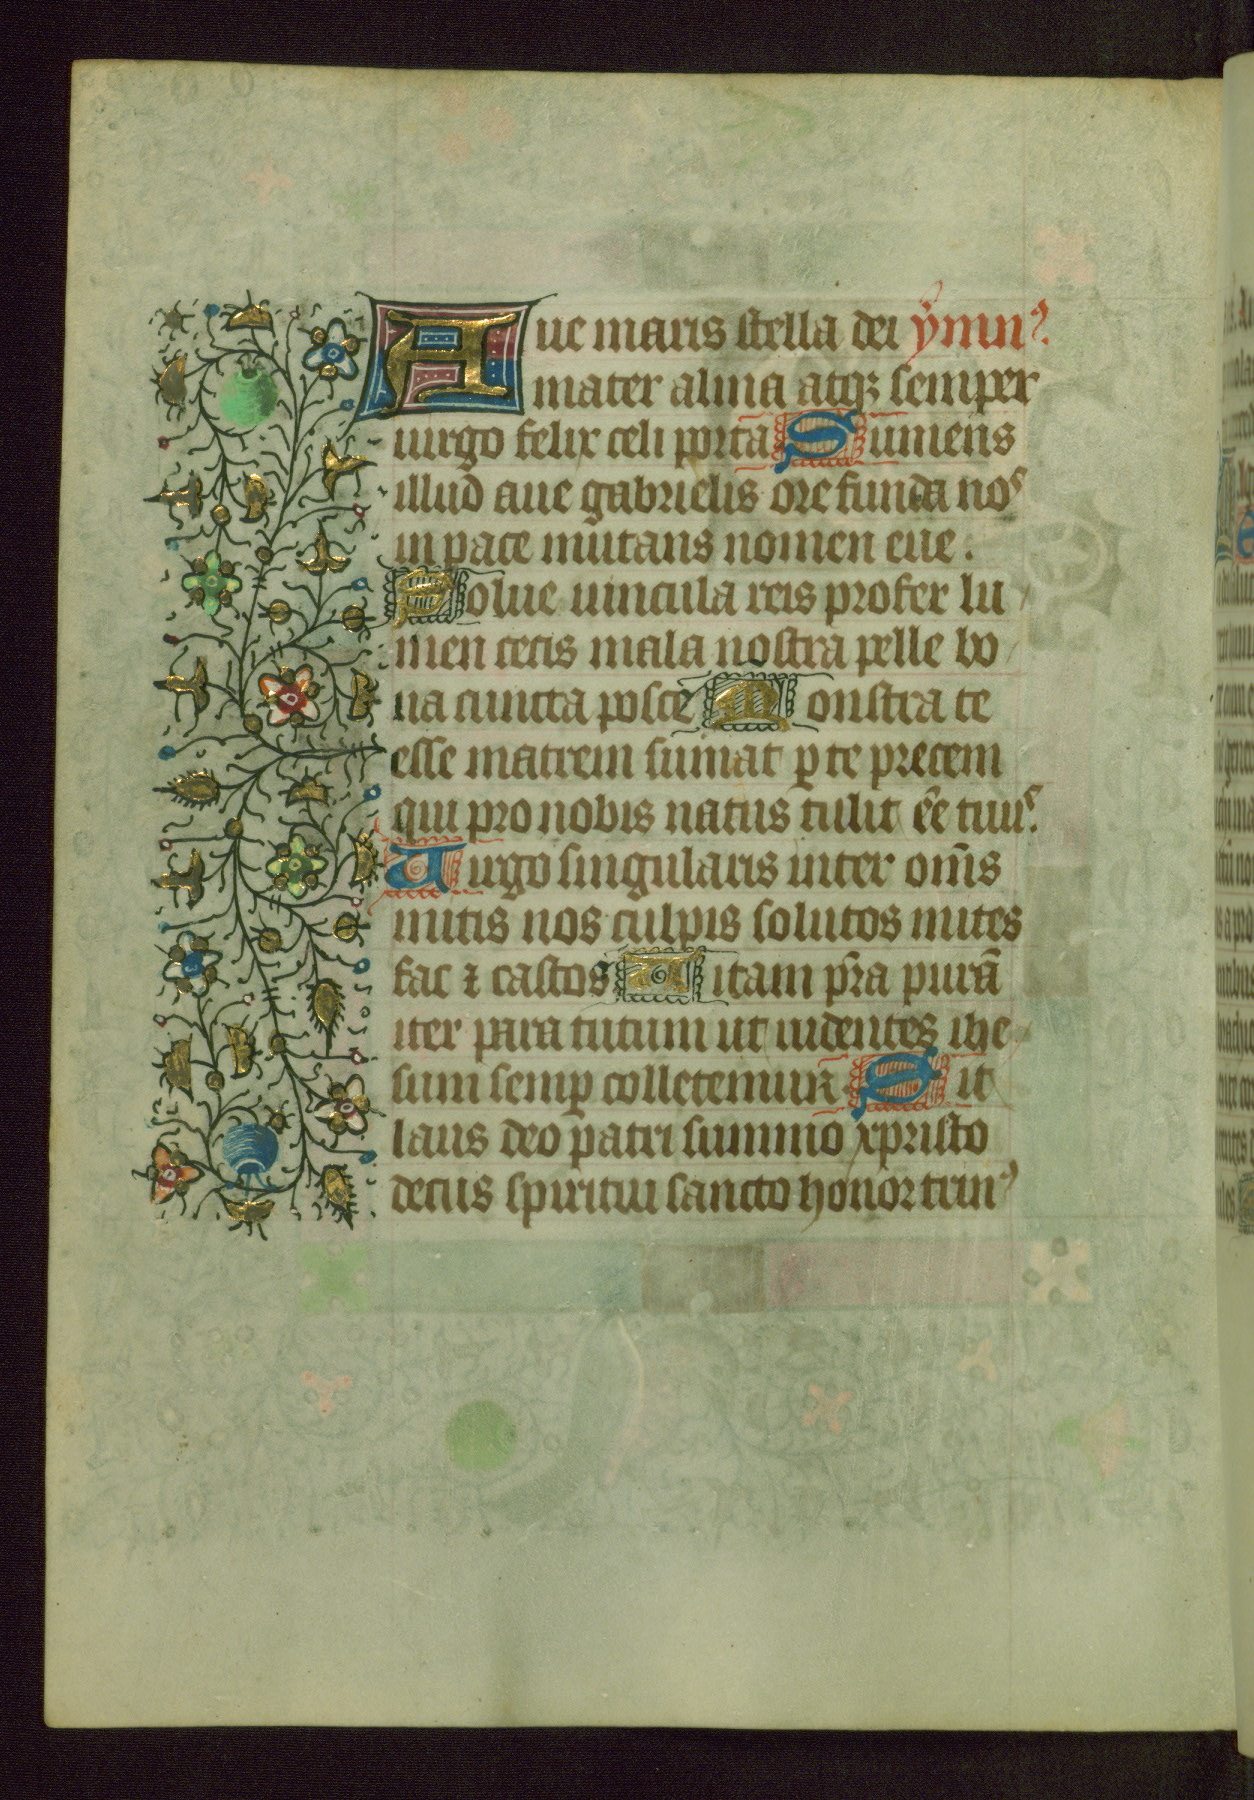 Aue maris stella dei ymnꝰ.
mater alma atqꝫ semper
uirgo felix celi porta Sumens
illud aue gabrielis ore funda noˢ
in pace mutans nomen eue.
Solue uincula reis profer lu
men cecis mala nostra pelle bo
na cuncta posce Monstra te
esse matrem sumat ꝑ te precem
qui pro nobis natus tulit eē tuuˢ.
Uirgo singularis inter om̄s
mitis nos culpis solutos mites
fac ⁊ castos Uitam p̄ra purā
iter para tutum ut uidentes ihe
sum semꝑ colletemur Sit
laus deo patri summo xpristo
decus spiritui sancto honor trinꝰ